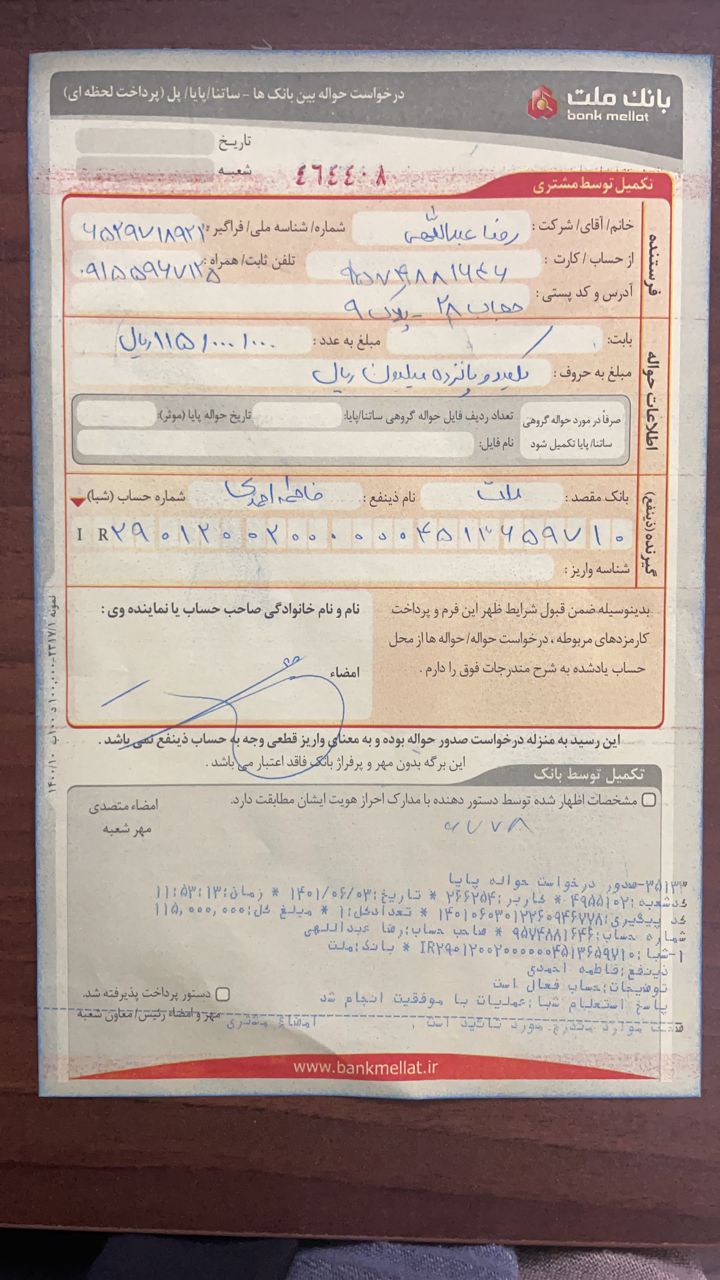 بانک ملت
bank mellat
درخواست حواله بین بانک ها - ساتنا/پایا/ پل (پرداخت لحظه ای)
تاریخ
شعبه
٤٦٤٤٠٨
تکمیل توسط مشتری
فرستنده
خانم/ آقای/ شرکت: رضا عبداللهی شماره/ شناسه ملی/ فراگیر:
از حساب / کارت: ۹۵۷۴۸۸۱۶۴۶ تلفن ثابت/ همراه: ۰۹۱۵۵۹۶۷۱۲۵
آدرس و کد پستی: حجاب ۲۸ - پلاک ۹
اطلاعات حواله
بابت: مبلغ به عدد: ۱۱۵/۰۰۰/۰۰۰ ریال
مبلغ به حروف: یکصد و پانزده میلیون ریال
صرفاً در مورد حواله گروهی ساتنا/ پایا تکمیل شود
تعداد ردیف فایل حواله گروهی ساتنا/پایا: تاریخ حواله پایا (موثر):
نام فایل:
گیرنده (ذینفع)
بانک مقصد: ملت نام ذینفع: فاطمه احمدی شماره حساب (شبا)
IR ۲۹۰۱۲۰۰۲۰۰۰۰۰۰۴۵۱۳۶۵۹۷۱۰
شناسه واریز:
بدینوسیله ضمن قبول شرایط ظهر این فرم و پرداخت
کارمزدهای مربوطه، درخواست حواله/ حواله ها از محل
حساب یادشده به شرح مندرجات فوق را دارم.
نام و نام خانوادگی صاحب حساب یا نماینده وی:
امضاء
این رسید به منزله درخواست صدور حواله بوده و به معنای واریز قطعی وجه به حساب ذینفع نمی باشد.
این برگه بدون مهر و پرفراژ بانک فاقد اعتبار می باشد.
تکمیل توسط بانک
مشخصات اظهار شده توسط دستور دهنده با مدارک احراز هویت ایشان مطابقت دارد.
امضاء متصدی
مهر شعبه
۳۵۱۳۳-صدور درخواست حواله پایا
کدشعبه:۴۹۵۵۱۰۲ * کاربر:۲۶۶۲۵۴ * تاریخ:۱۴۰۱/۰۶/۰۳ * زمان:۱۱:۵۳:۱۳
کد پیگیری:۱۴۰۱۰۶۰۳۰۱۲۲۶۰۹۴۶۷۷۸ * تعدادکل:۱ * مبلغ کل:۱۱۵,۰۰۰,۰۰۰
شماره حساب:۹۵۷۴۸۸۱۶۴۶ * صاحب حساب:رضا عبداللهی
۱-شبا:IR۲۹۰۱۲۰۰۲۰۰۰۰۰۰۴۵۱۳۶۵۹۷۱۰ * بانک:ملت
ذینفع:فاطمه احمدی
توضیحات:حساب فعال است
پاسخ استعلام شبا:عملیات با موفقیت انجام شد
صحت موارد مندرج مورد تائید است. امضاء مشتری
دستور پرداخت پذیرفته شد.
مهر و امضاء رئیس/ معاون شعبه
www.bankmellat.ir